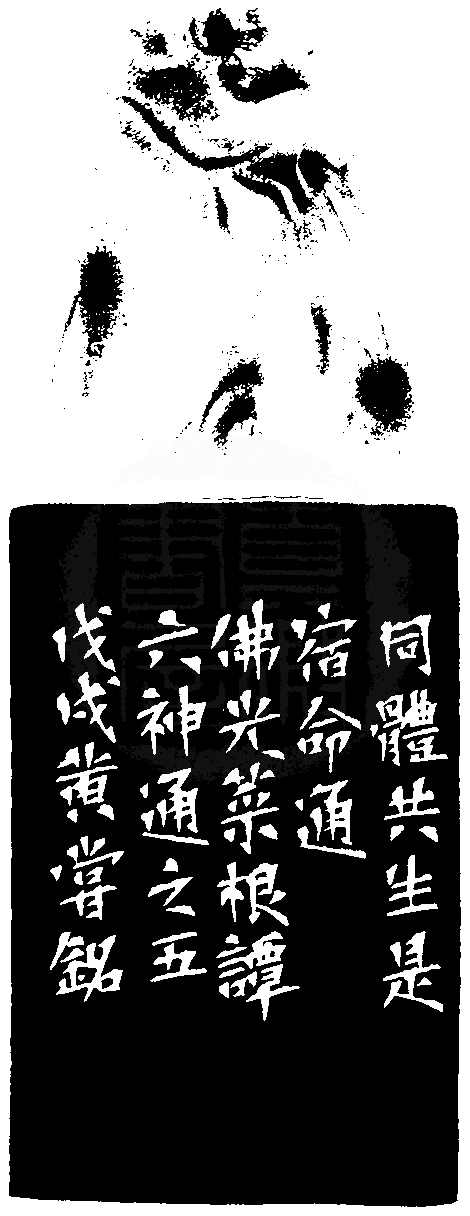 同體共生是
宿命通
佛光菜根譚
六神通之五
戊戌黃嘗銘